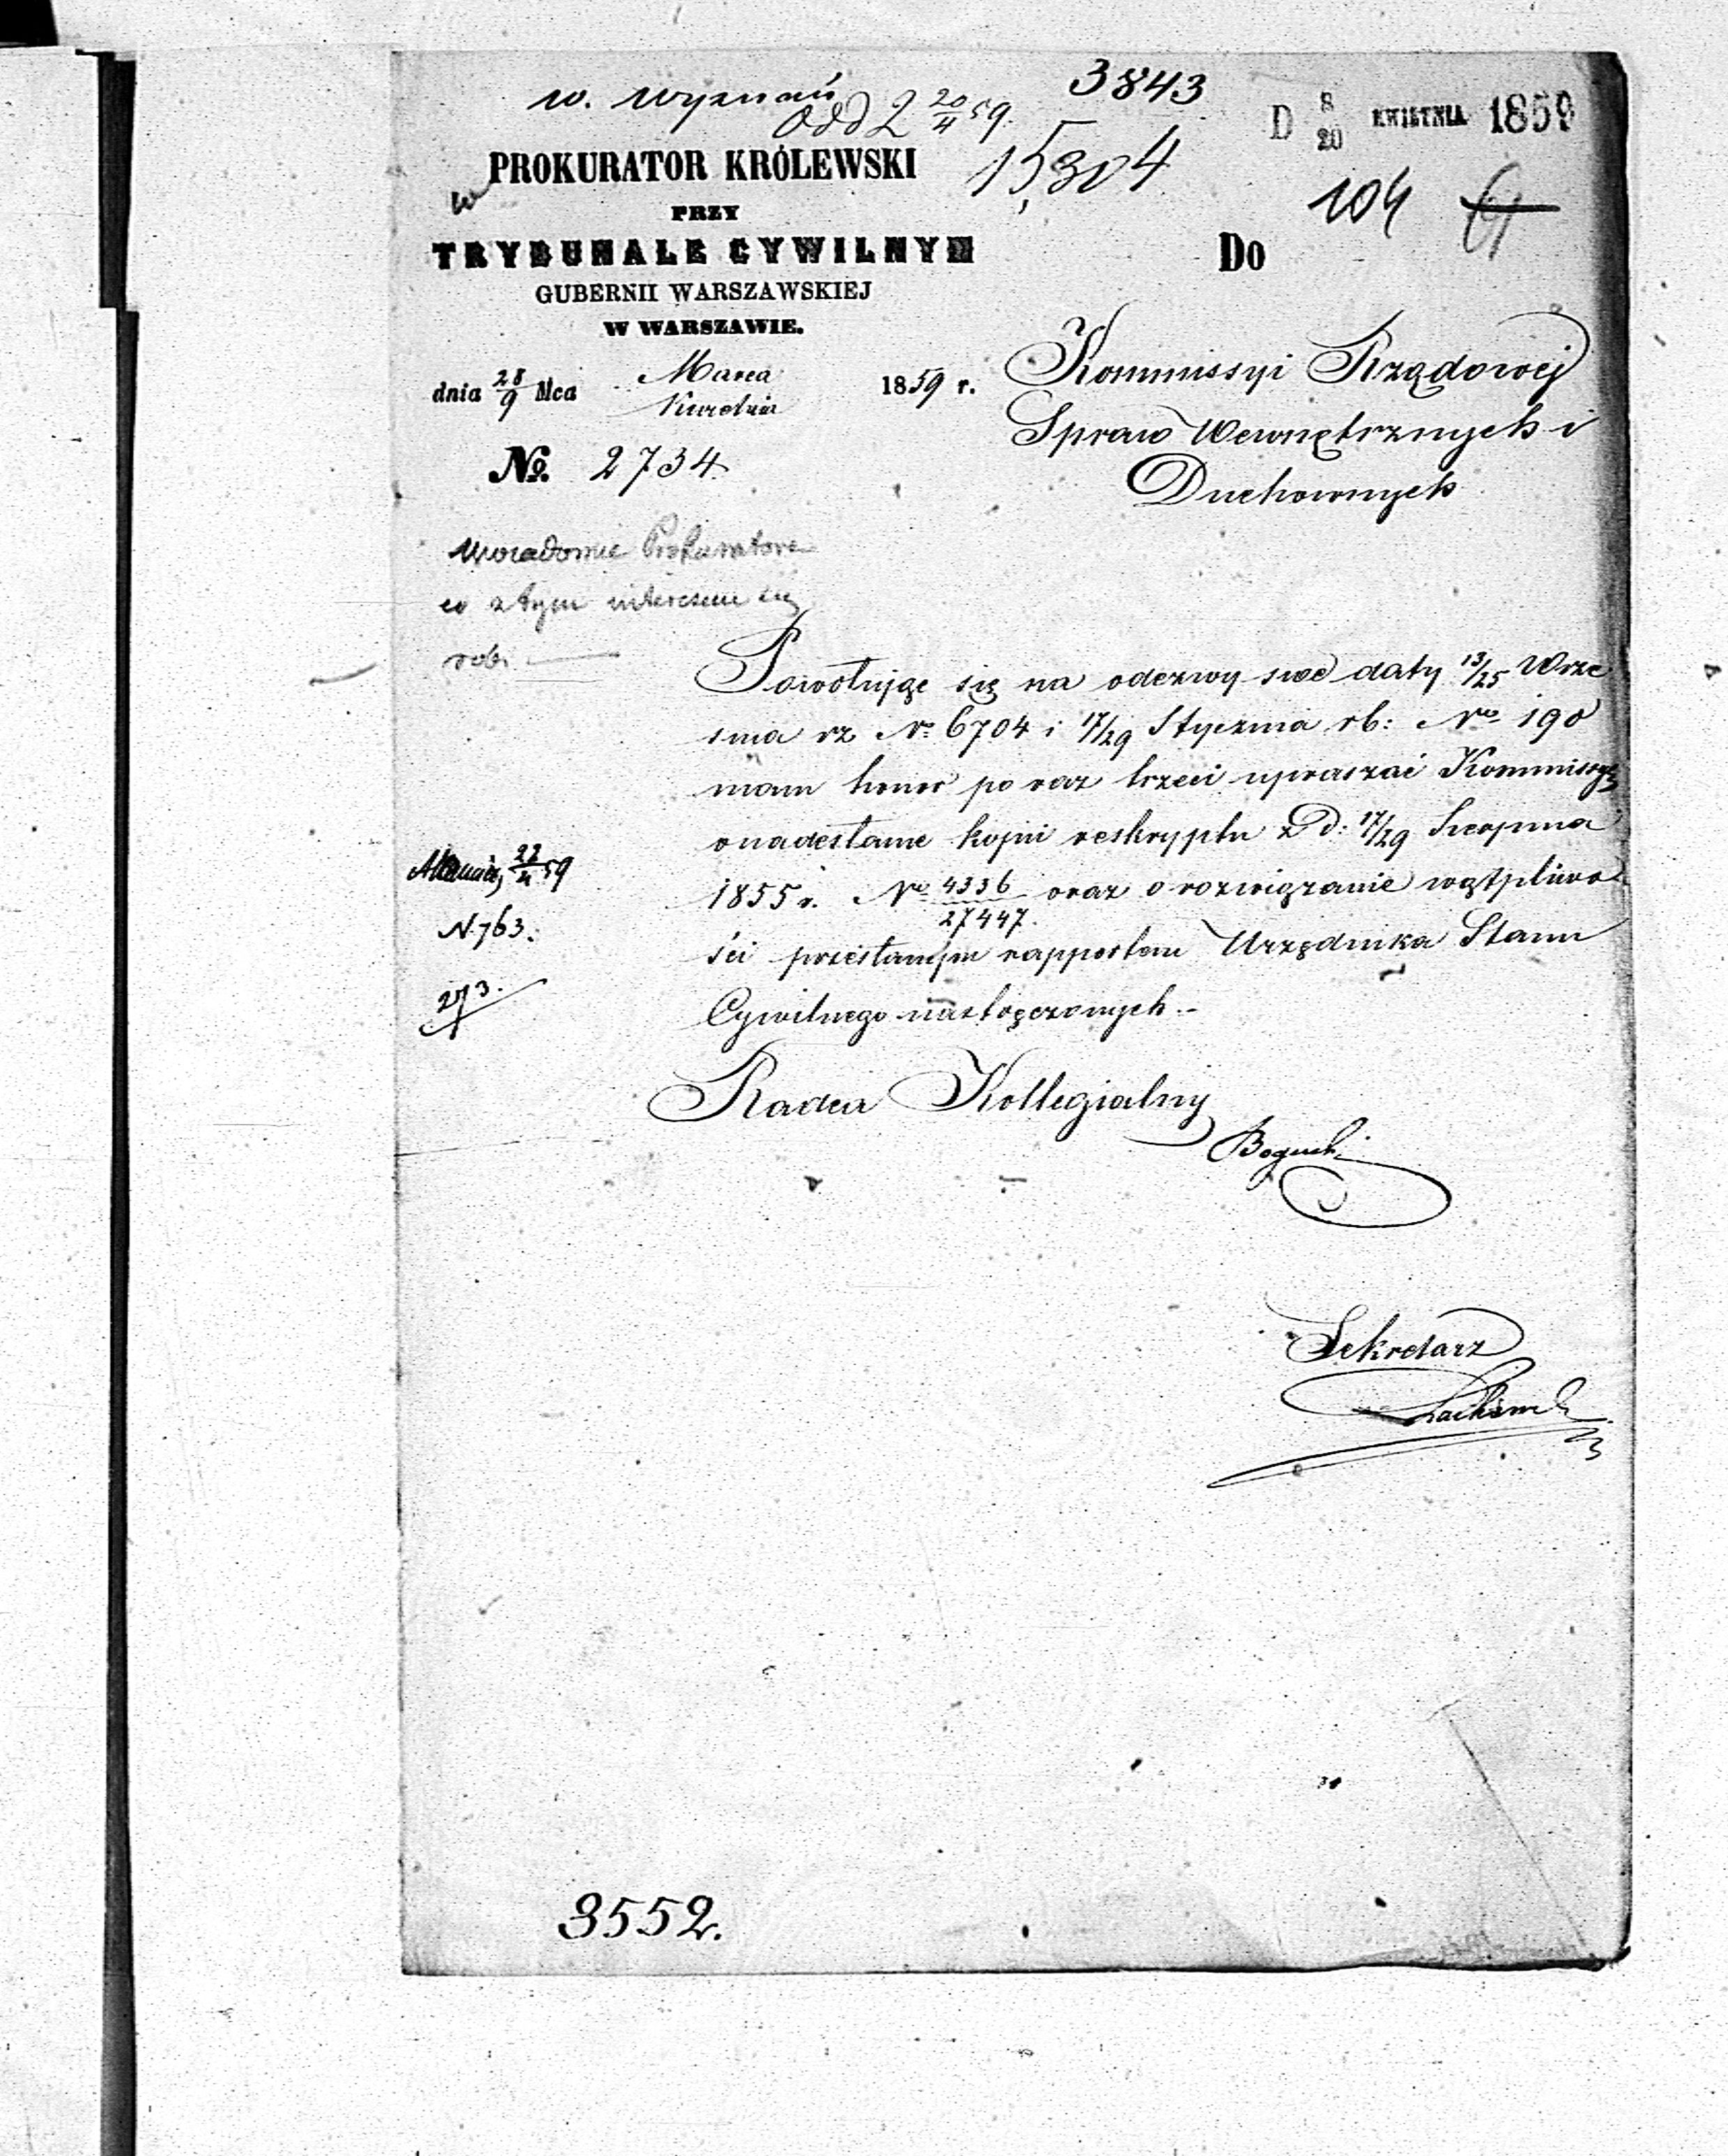 w. wyznań
odd 2 20/4 59.
3843
15304
D 8/20 KWIETNIA 1859
104
PROKURATOR KRÓLEWSKI
PRZY
TRYBUNALE CYWILNYM
GUBERNII WARSZAWSKIEJ
W WARSZAWIE.
dnia 28/9 Mca Marca Kwietnia 1859 r.
No. 2734
Do
Kommissyi Rządowej
Spraw Wewnętrznych i
Duchownych
Uwiadomić Prokuratora
co z tym interesem się
robi
Powołując się na odezwy swe daty 13/25 Wrze
śnia rz No 6704 i 17/29 Stycznia rb: No 190
mam honor po raz trzeci upraszać Kommissyę
o nadesłanie kopii reskryptu z D: 17/29 Sierpnia
1855 r. No 4336/27447. oraz o rozwiązanie wątpliwo
ści przesłanym rapportem Urzędnika Stanu
Cywilnego nastręczonych.-
22/4 59
N. 763.
273.
Radca Kollegialny
Bogucki
Sekretarz
3552.